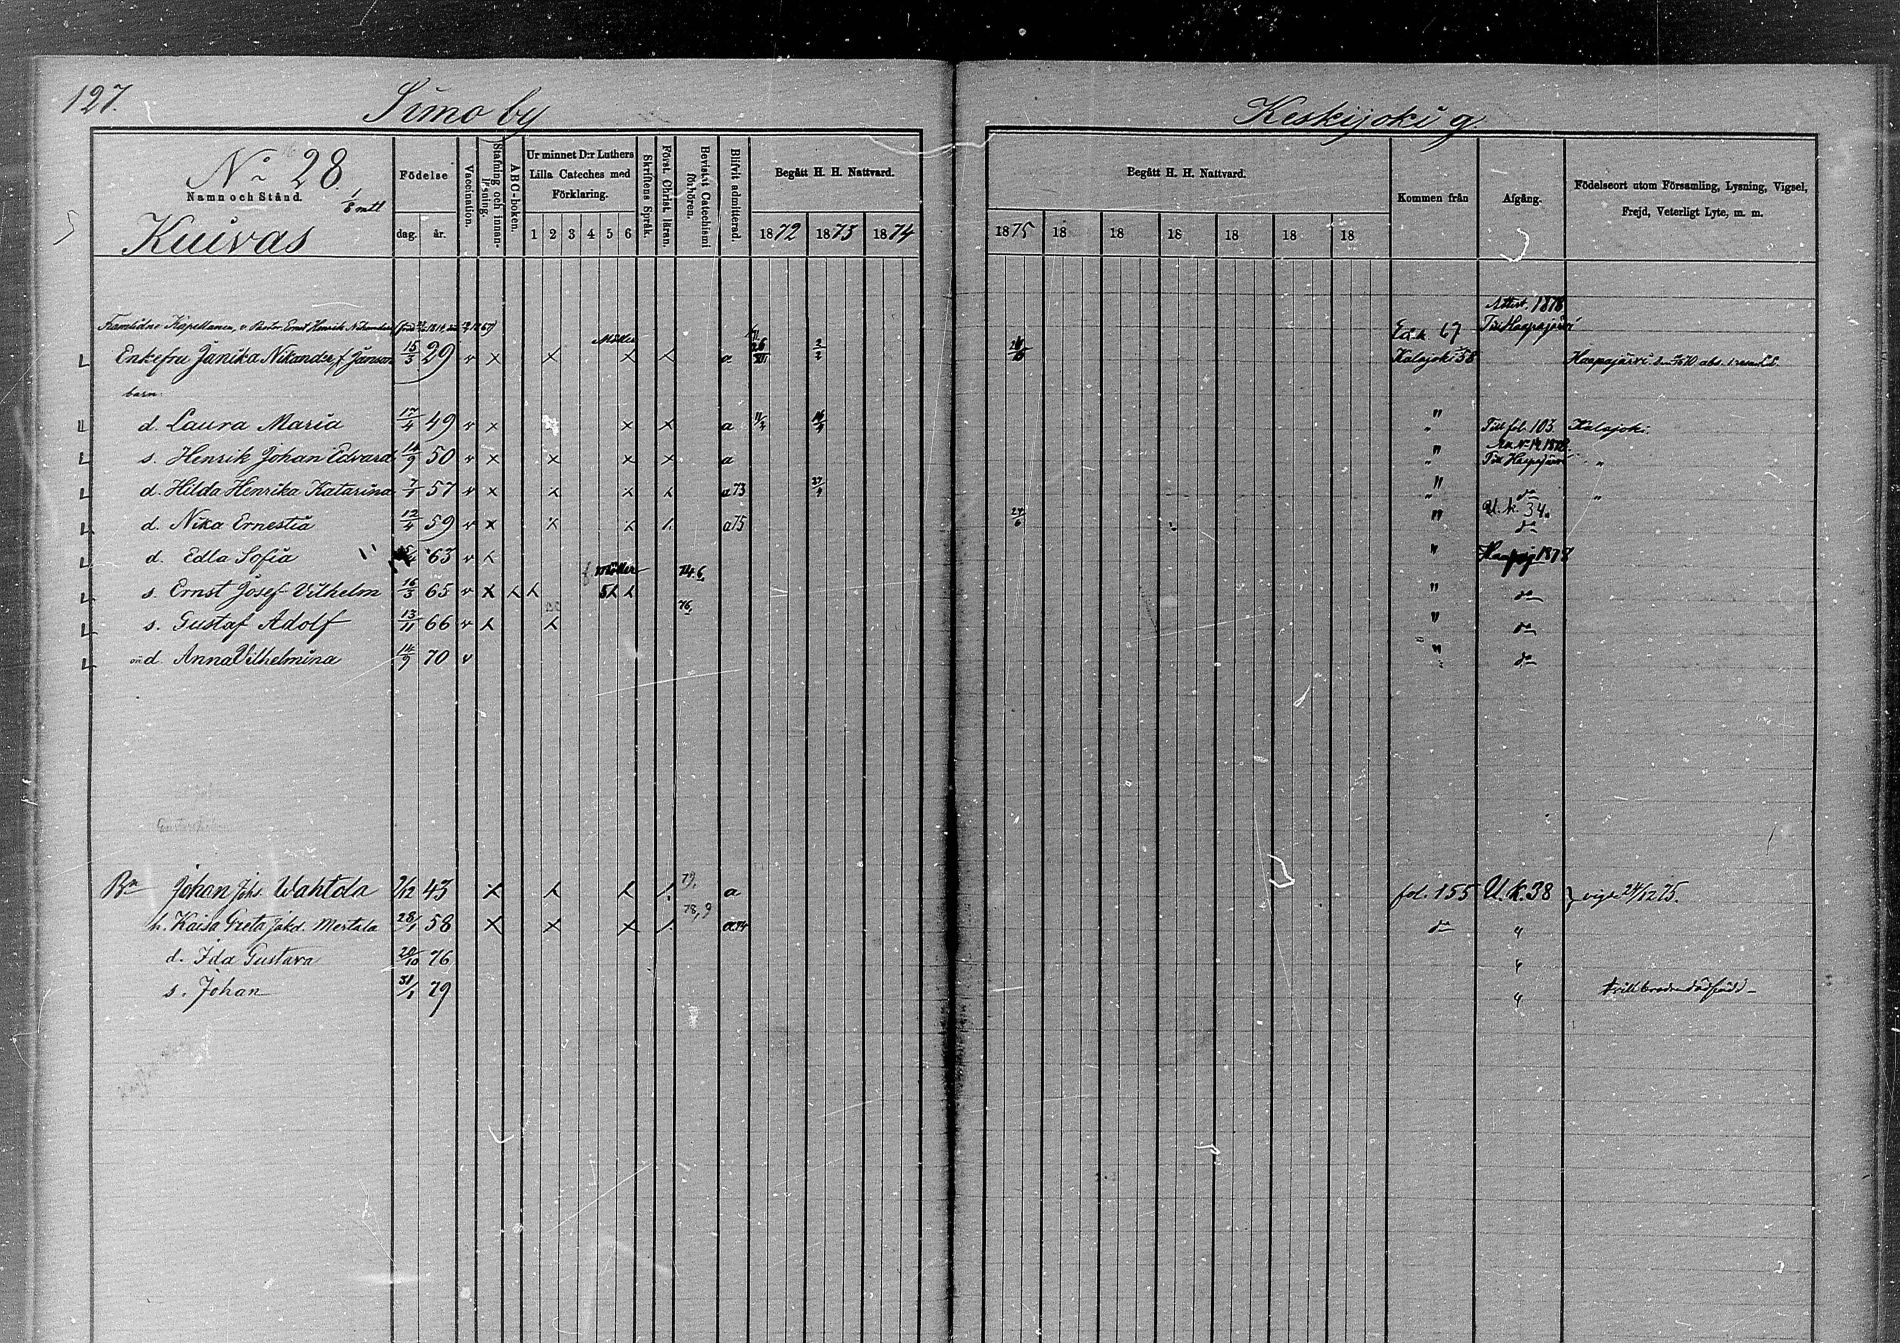 127.
Simo by
Keskijoki g.
No 28.
Namn och Stånd.
1/8 mtl
Kuivas
Födelse
dag. år.
Vaccination.
Stafning och innanläsning.
ABC-boken.
Ur minnet D:r Luthers Lilla Cateches med Förklaring.
1 2 3 4 5 6
Skriftens Språk.
Först. Christ. läran.
Bevistat Catechismi förhören.
Blifvit admitterad.
Begått H. H. Nattvard.
1872 1873 1874
Begått H. H. Nattvard.
1875 18 18 18 18 18 18
Kommen från
Afgång.
Födelseort utom Församling, Lysning, Vigsel, Frejd, Veterligt Lyte, m. m.
Framlidne Kapellanen, v. Pastor Ernst Henrik Nikander
Attest. 1878
Till Haapajärvi
Enkefru Janika Nikander, f. Janson 15/3 29 v x x x x a Kalajoki 58
barn:
d. Laura Maria 17/4 49 v x x x a " Till fol. 103. Kalajoki.
s. Henrik Johan Edvard 14/9 50 v x x x x a " Till Haapajärvi "
d. Hilda Henrika Katarina 57 v x x x x a 73 " do "
U. k. 34.
d. Nika Ernestia 12/4 59 v x x x x a 75 24/6 " do
d. Edla Sofia 63 v x " Haapaj 1878
s. Ernst Josef Vilhelm 16/3 65 v x x x " do
s. Gustaf Adolf 13/11 66 v x x 76 " do
d. Anna Vilhelmina 14/9 70 v " do
Bn Johan Johs. Wahtola 2/12 43 x x x x 79, a fol. 155 U. k. 38 } vigd 24/12 75.
h. Kaisa Greta Jakd. Mertala 28/1 58 x x x x 78, 9 a 74 do "
d. Ida Gustava 20/10 76 "
s. Johan 31/1 79 " tvillbroder dödfödd